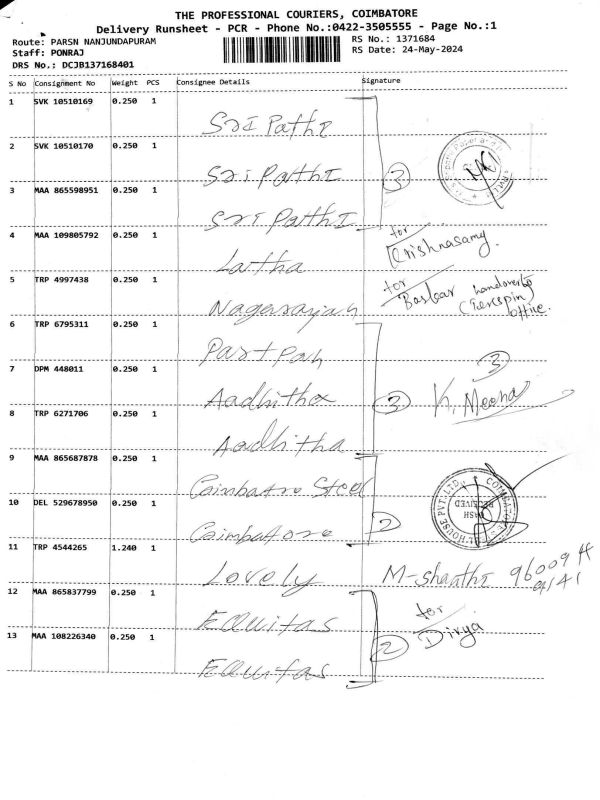 THE PROFESSIONAL COURIERS, COIMBATORE
Delivery Runsheet - PCR - Phone No.:0422-3505555 - Page No.:1
Route: PARSN NANJUNDAPURAM
RS No.: 1371684
Staff: PONRAJ
RS Date: 24-May-2024
DRS No.: DCJB137168401
S No Consignment No Weight PCS Consignee Details Signature
1 SVK 10510169 0.250 1
Sri Pathi
2 SVK 10510170 0.250 1
Sri Pathi
3
3 MAA 865598951 0.250 1
Sri Pathi
4 MAA 109805792 0.250 1
for
Krishnasamy.
Latha
5 TRP 4997438 0.250 1
for
Baskar handover to
office.
Nagarajan
6 TRP 6795311 0.250 1
7 DPM 448011 0.250 1
3
Aadhitha
3 K. Meena
8 TRP 6271706 0.250 1
Aadhitha
9 MAA 865687878 0.250 1
Coimbatore Steel
10 DEL 529678950 0.250 1
HOUSE PVT. LTD. COIMBATORE
CASH
RECEIVED
2
Coimbatore
11 TRP 4544265 1.240 1
Lovely
M-shanthi 96009
12 MAA 865837799 0.250 1
for
Equitas
13 MAA 108226340 0.250 1
2 Divya
Equitas